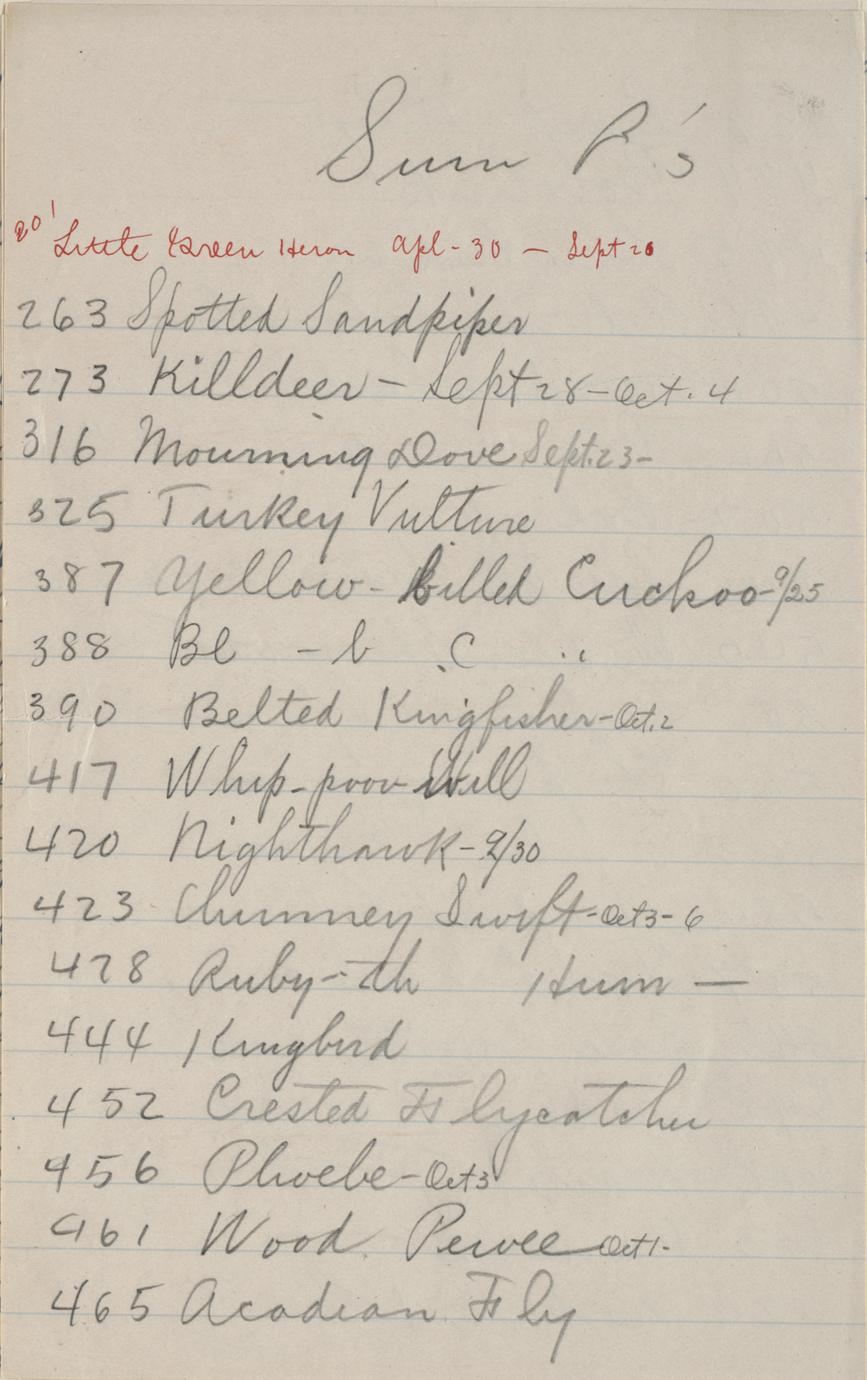 Sum R's
201 Little Green Heron Apl-30 - Sept 20
263 Spotted Sandpiper
273 Killdeer - Sept 28 - Oct. 4
316 Mourning Dove Sept. 23 -
325 Turkey Vulture
387 Yellow-billed Cuckoo - 9/25
388 Bl - b . C "
390 Belted Kingfisher - Oct. 2
417 Whip-poor-Will
420 Nighthawk - 9/30
423 Chimney Swift - Oct 3-6
428 Ruby-th Hum —
444 Kingbird
452 Crested Flycatcher
456 Phoebe - Oct 3
461 Wood Pewee Oct 1-
465 Acadian Fly